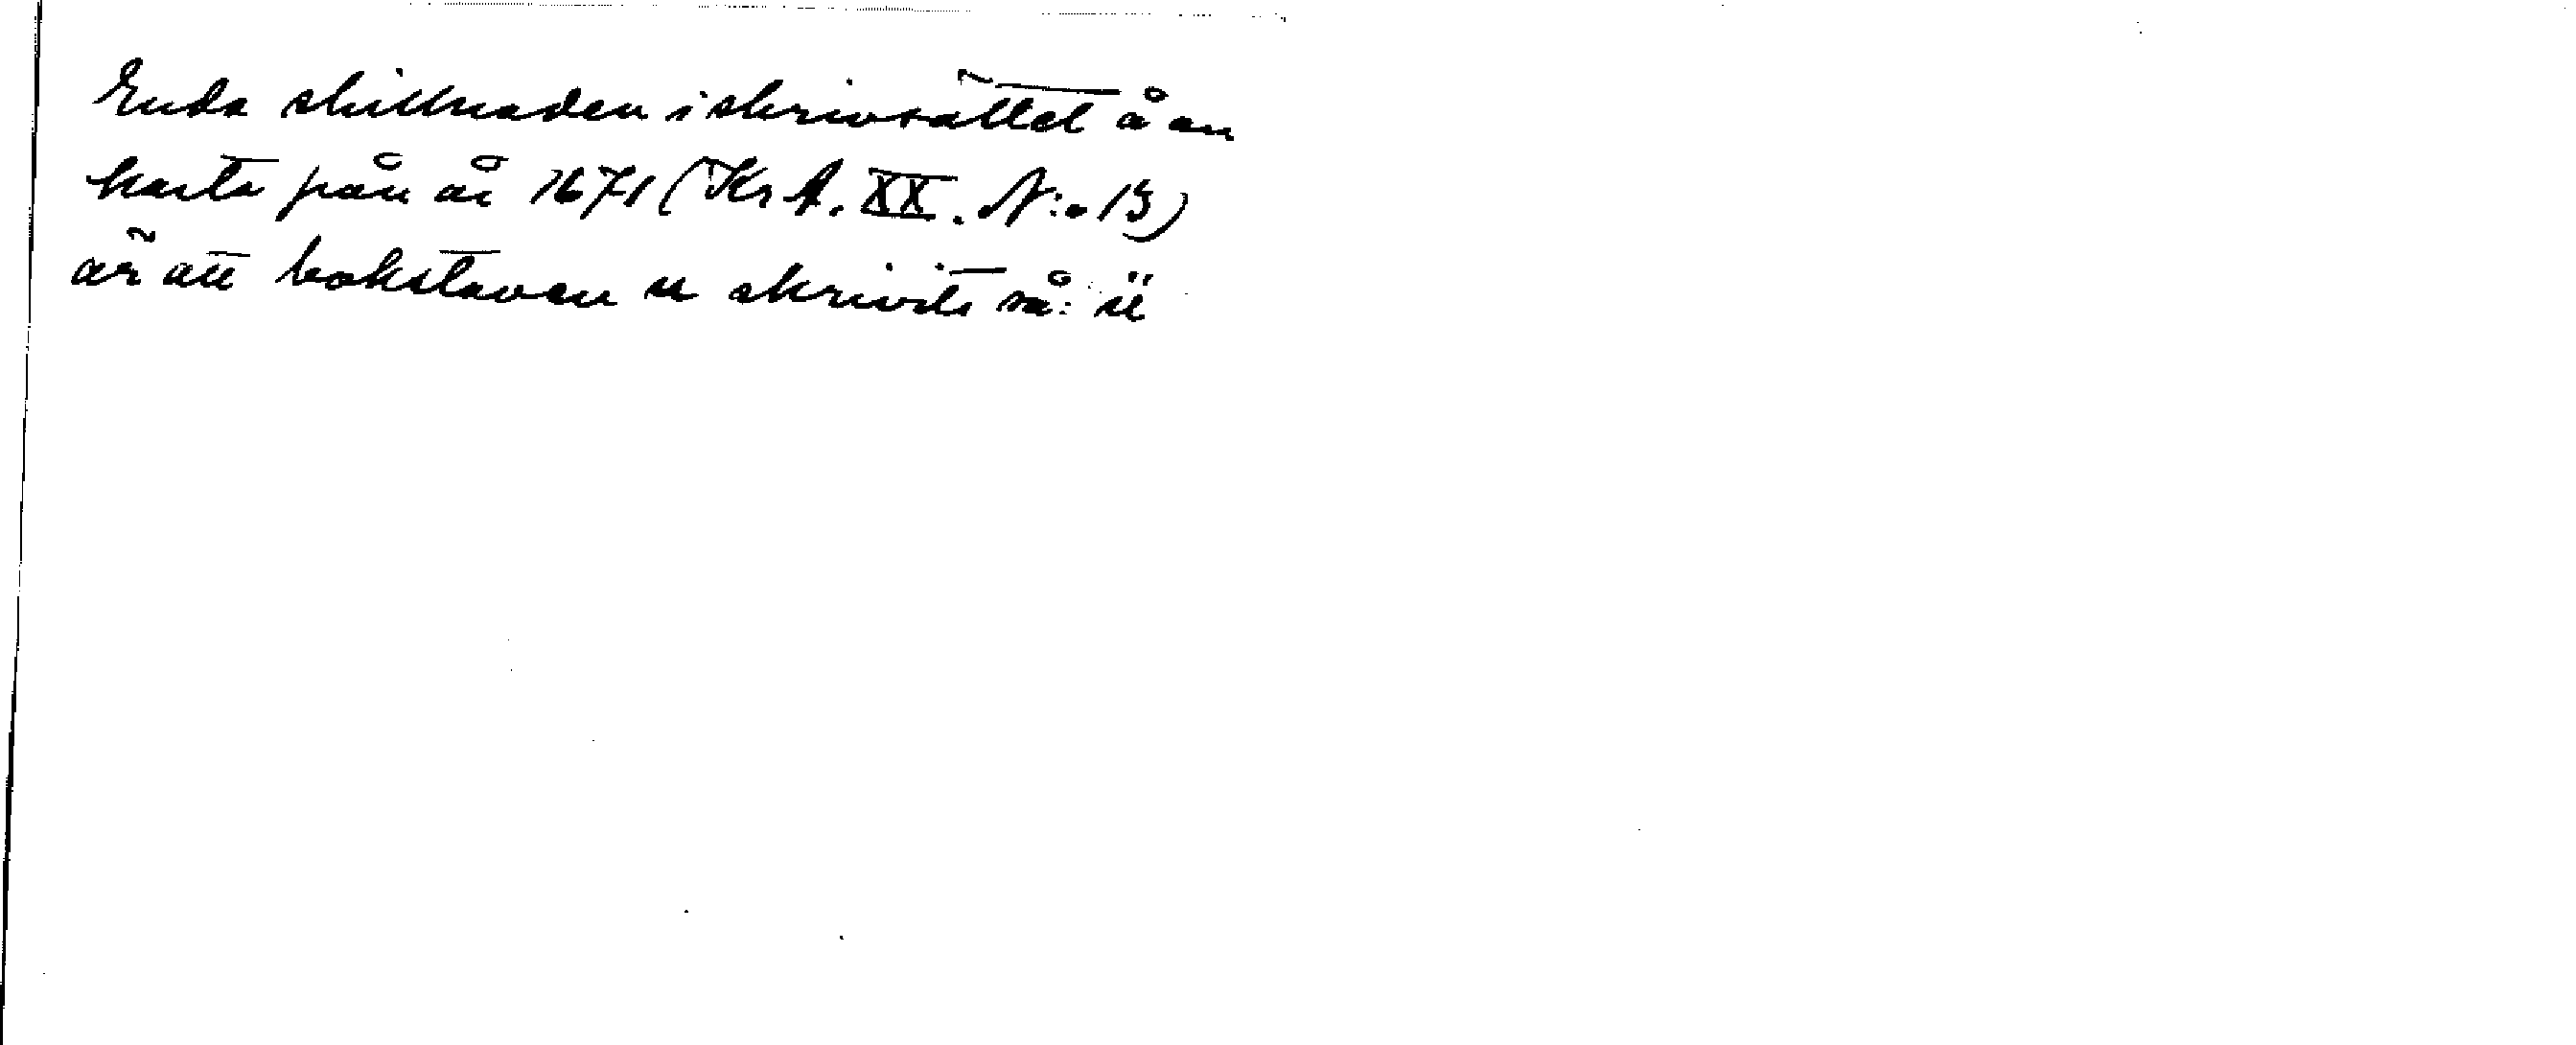 Enda skillnaden i skrivsättet å en
karta från år 1671 (Kr A. XX. N:o 13)
är att bokstaven u skrivits så: ü